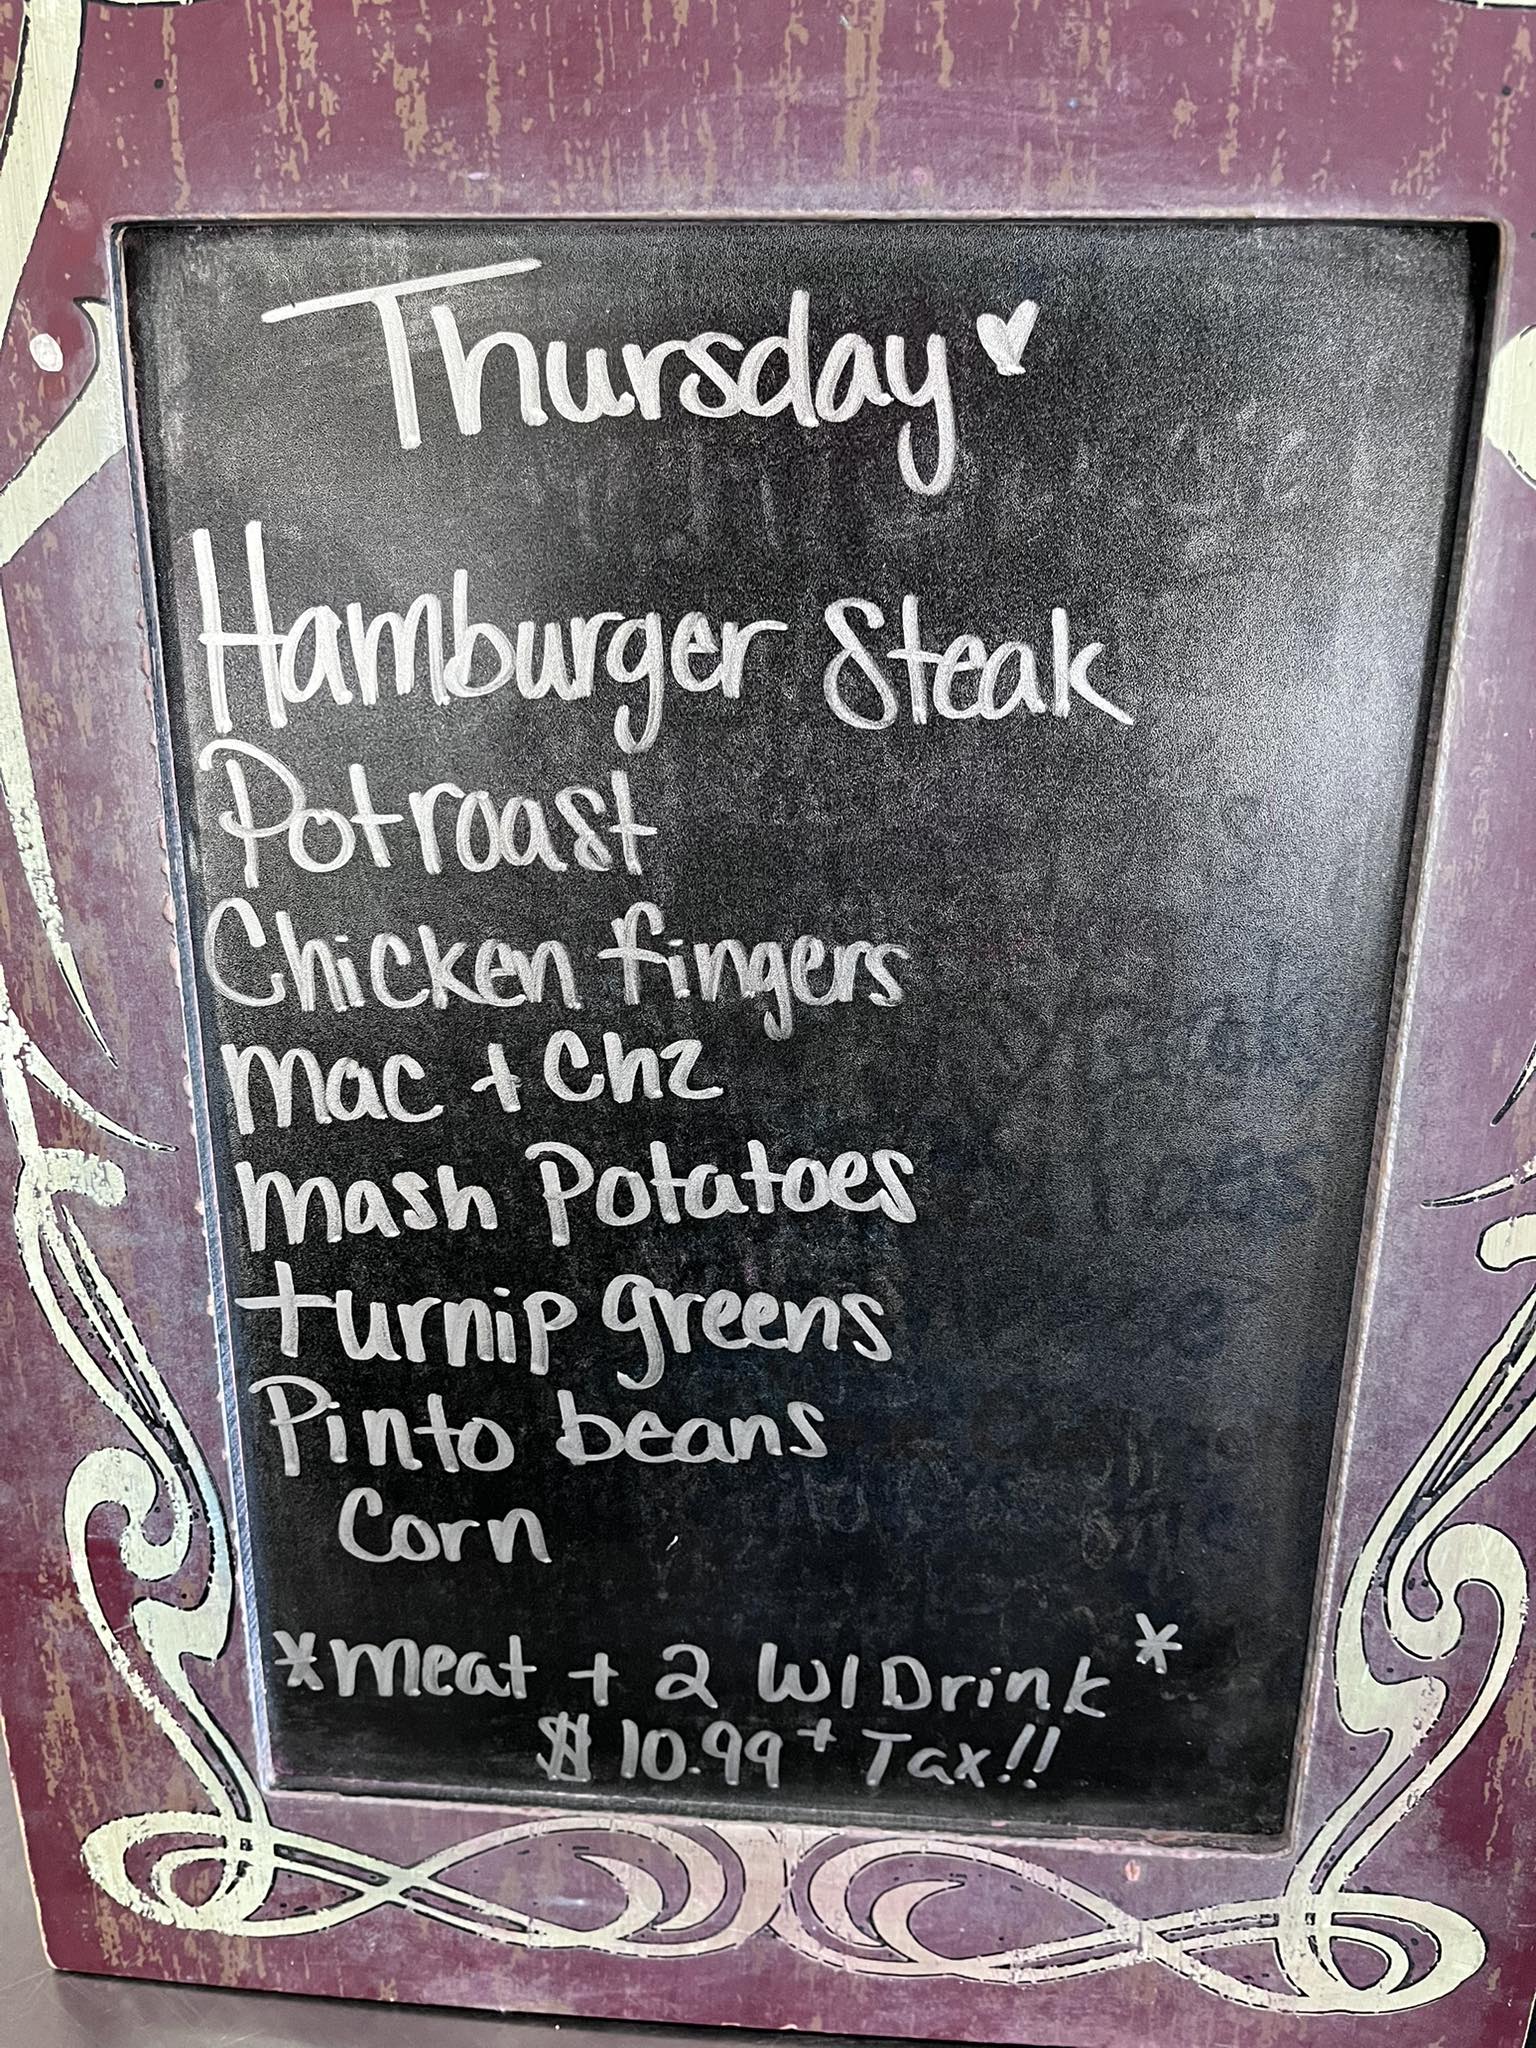 Thursday
Hamburger Steak
Potroast
Chicken fingers
Mac + Chz
Mash Potatoes
turnip greens
Pinto beans
Corn
*Meat + 2 w/ Drink *
$10.99 + Tax!!